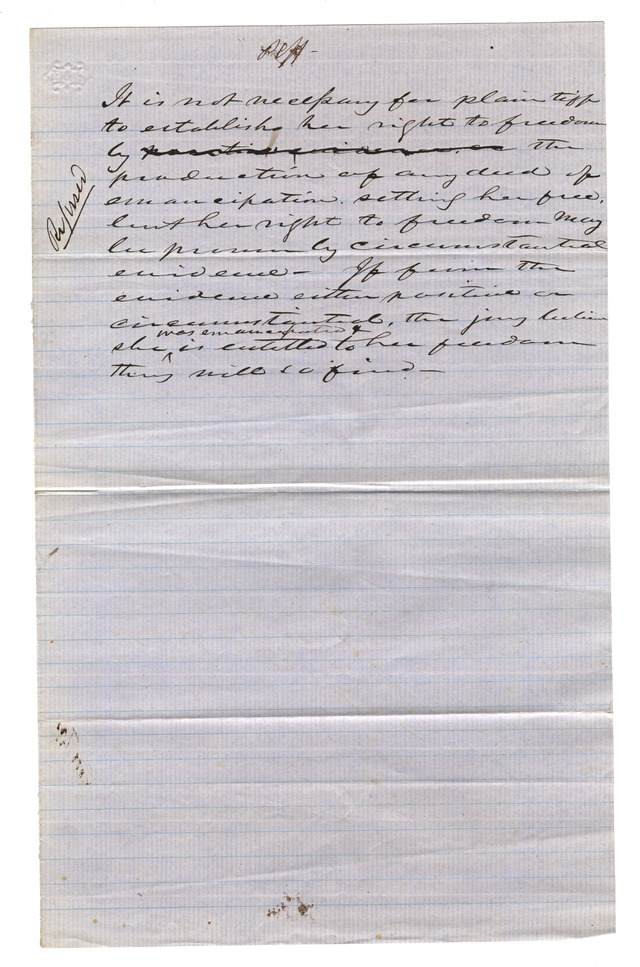 Plff -
It is not necessary for plaintiff
to establish her right to freedom
by positive evidence or the
production of any deed of
emancipation setting her free,
but her right to freedom may
be proven by circumstantial
evidence - If from the
evidence either positive or
circumstantial, the jury believe
was emancipated &
she is entitled to her freedom
they will so find -
Refused